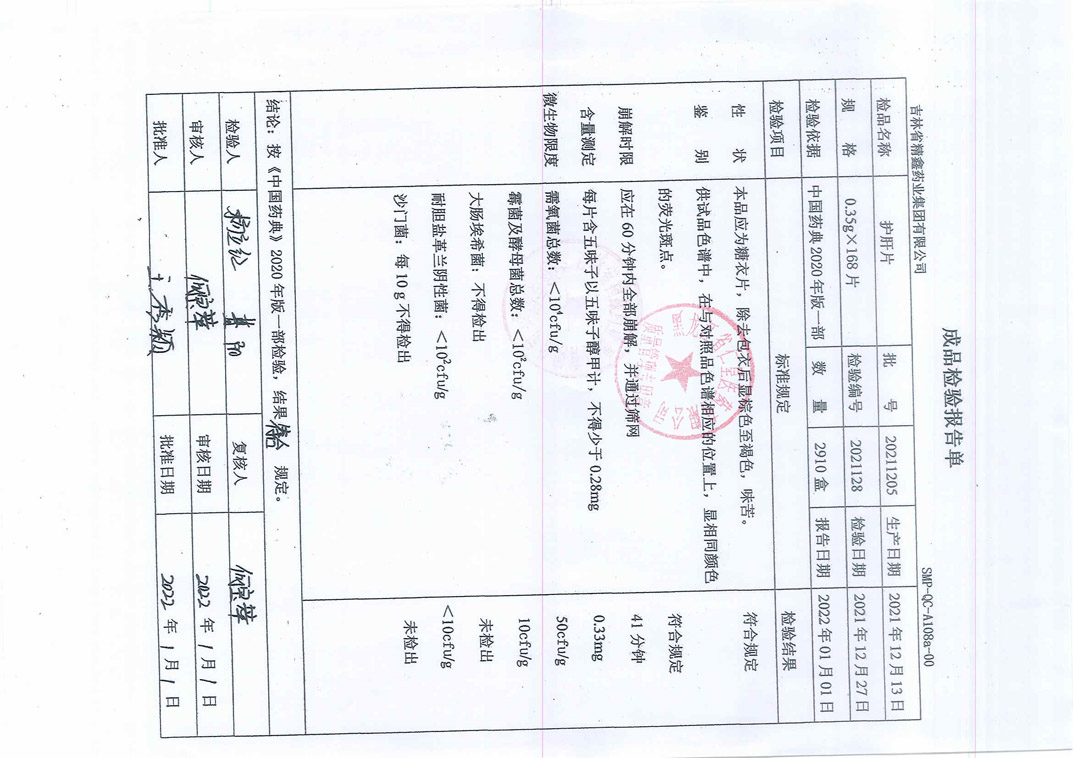 成品检验报告单
吉林省精鑫药业集团有限公司 SMP-QC-A108a-00
检品名称 护肝片 批 号 20211205 生产日期 2021年12月13日
规 格 0.35g×168片 检验编号 2021128 检验日期 2021年12月27日
检验依据 中国药典2020年版一部 数 量 2910盒 报告日期 2022年01月01日
检验项目 标准规定 检验结果
性 状 本品应为糖衣片，除去包衣后显棕色至褐色，味苦。 符合规定
鉴 别 供试品色谱中，在与对照品色谱相应的位置上，显相同颜色
的荧光斑点。 符合规定
崩解时限 应在60分钟内全部崩解，并通过筛网 41分钟
含量测定 每片含五味子以五味子醇甲计，不得少于0.28mg 0.33mg
微生物限度 需氧菌总数：＜10⁴cfu/g 50cfu/g
霉菌及酵母菌总数：＜10²cfu/g 10cfu/g
大肠埃希菌：不得检出 未检出
耐胆盐革兰阴性菌：＜10²cfu/g ＜10cfu/g
沙门菌：每10g不得检出 未检出
结论：按《中国药典》2020年版一部检验，结果符合 规定。
检验人 复核人
审核人 审核日期 2022年1月1日
批准人 批准日期 2022年1月1日